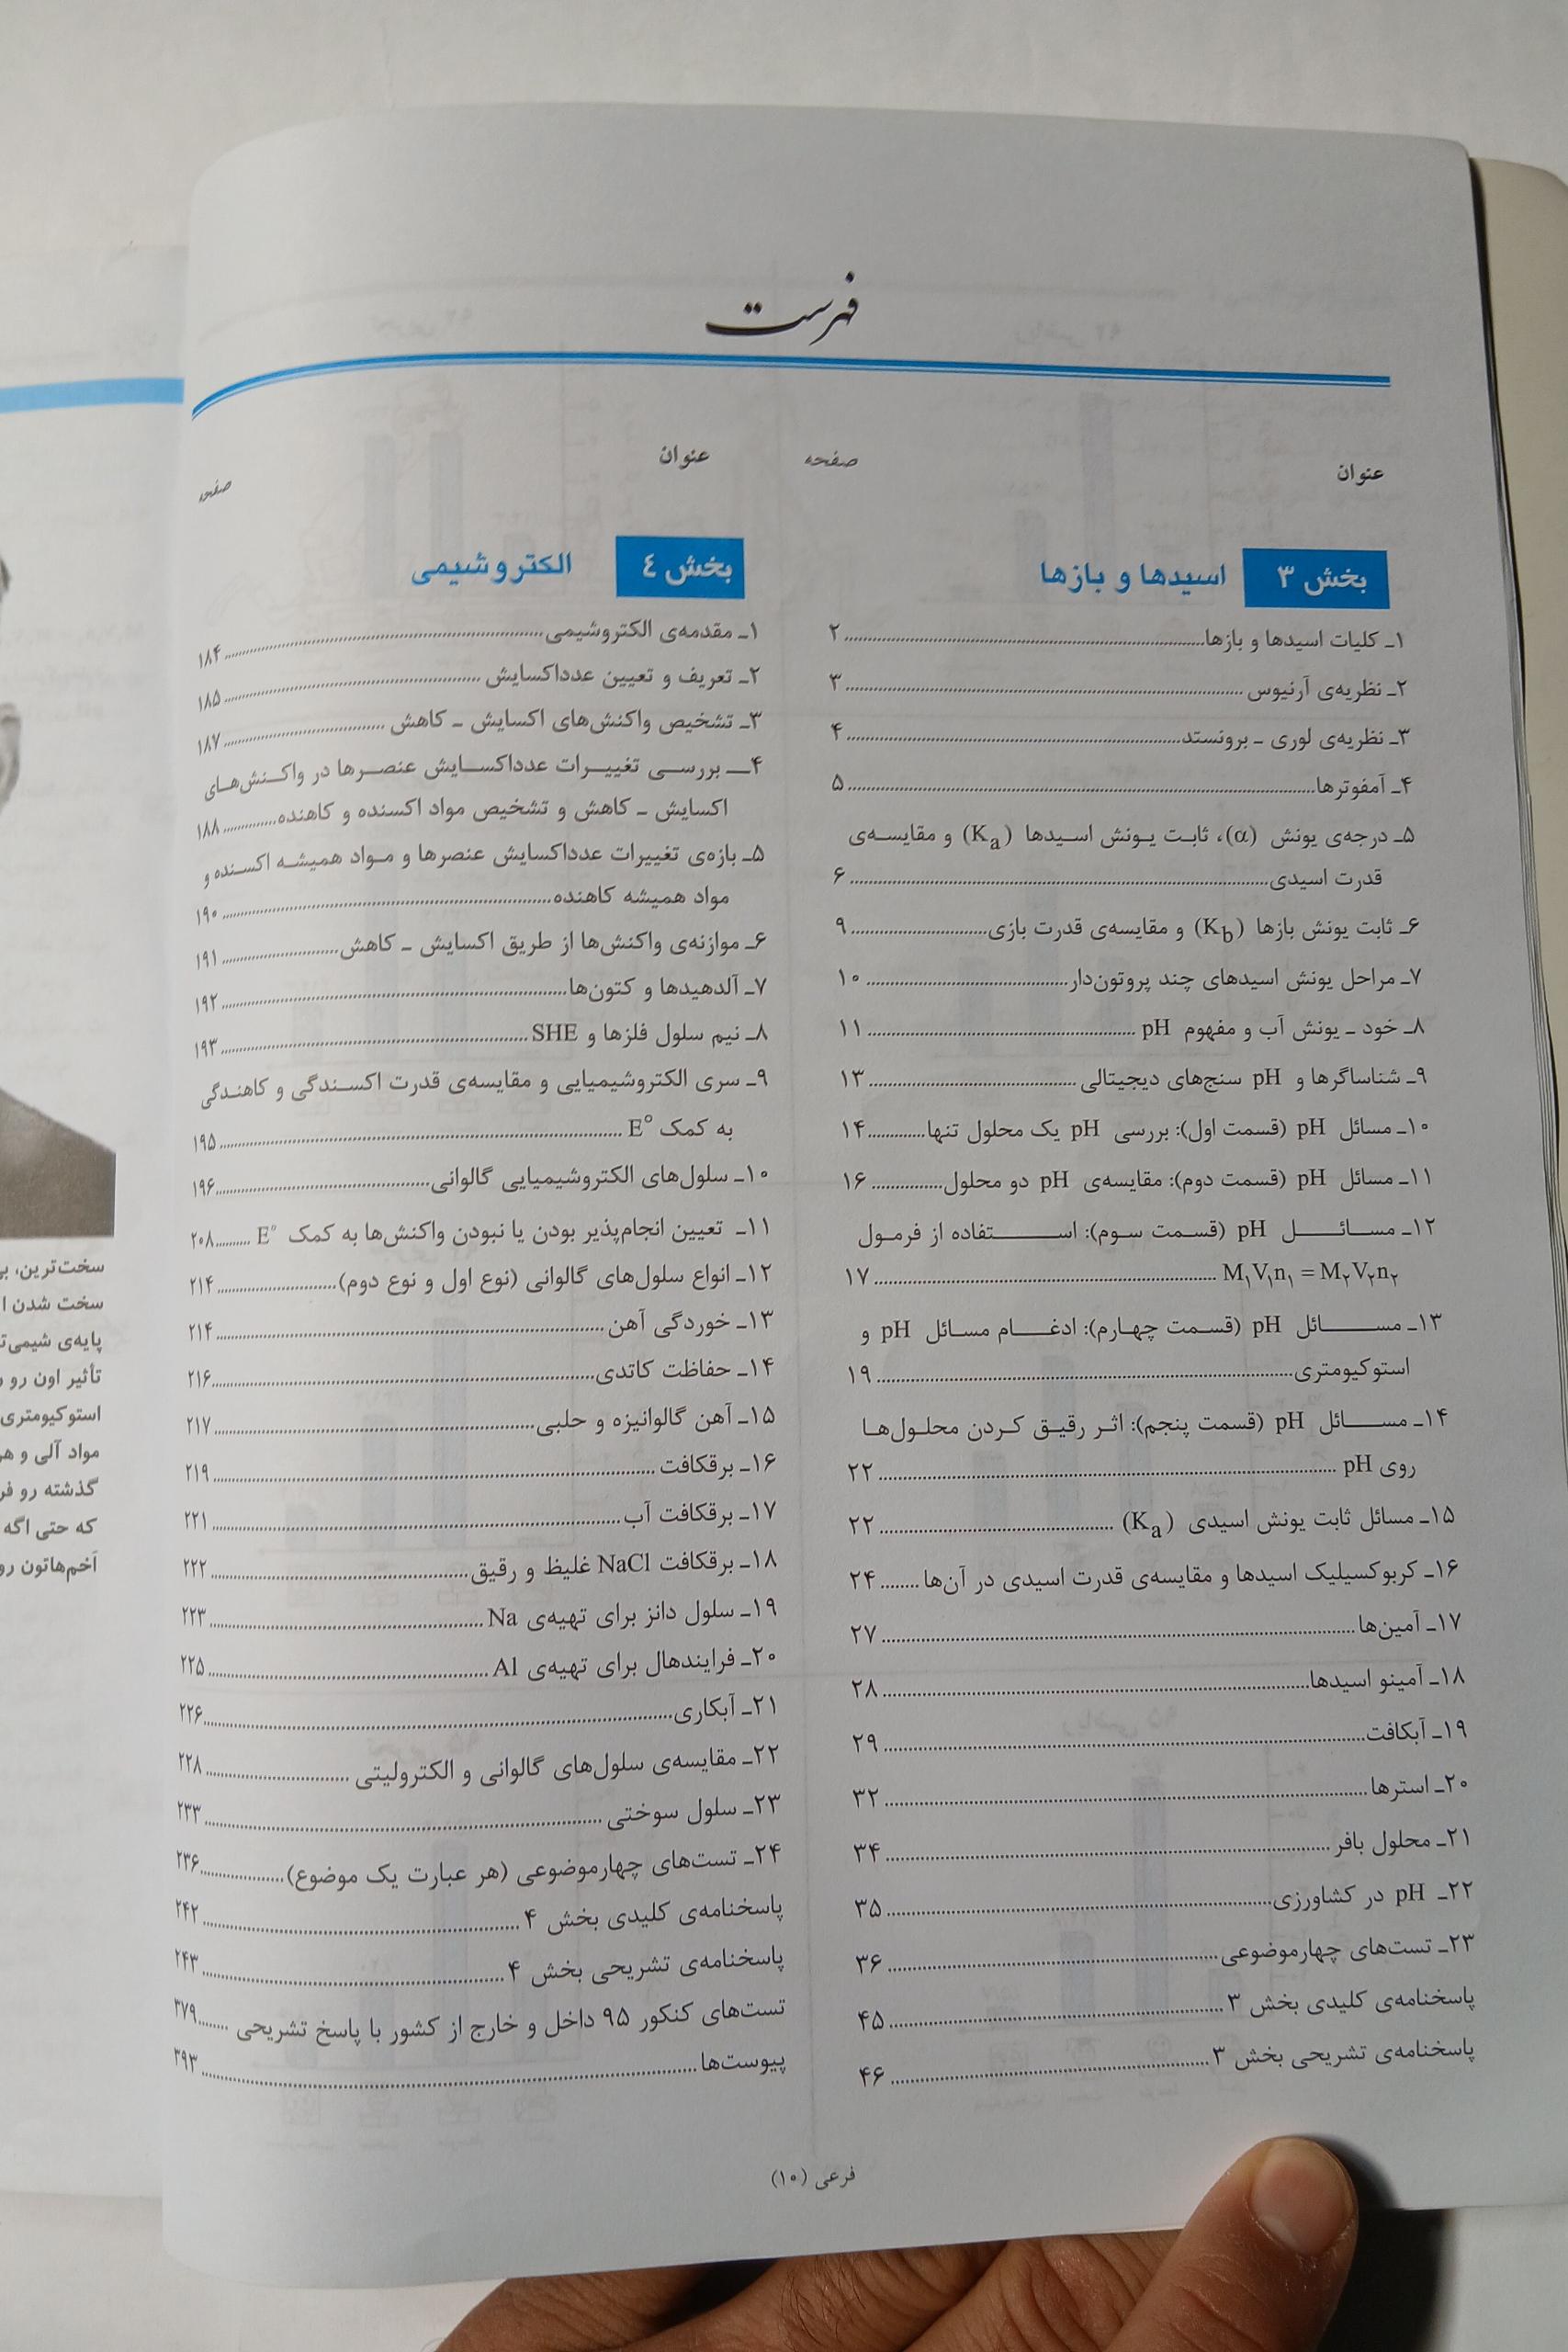 فهرست
عنوان
صفحه
بخش ۳
اسیدها و بازها
۱ـ کلیات اسیدها و بازها................۲
۲ـ نظریه‌ی آرنیوس................۳
۳ـ نظریه‌ی لوری ـ برونستد................۴
۴ـ آمفوترها................۵
۵ـ درجه‌ی یونش (α)، ثابت یونش اسیدها (Ka) و مقایسه‌ی
قدرت اسیدی................۶
۶ـ ثابت یونش بازها (Kb) و مقایسه‌ی قدرت بازی................۹
۷ـ مراحل یونش اسیدهای چند پروتون‌دار................۱۰
۸ـ خود ـ یونش آب و مفهوم pH................۱۱
۹ـ شناساگرها و pH سنج‌های دیجیتالی................۱۳
۱۰ـ مسائل pH (قسمت اول): بررسی pH یک محلول تنها............۱۴
۱۱ـ مسائل pH (قسمت دوم): مقایسه‌ی pH دو محلول..............۱۶
۱۲ـ مسائل pH (قسمت سوم): استفاده از فرمول
M۱V۱n۱ = M۲V۲n۲................۱۷
۱۳ـ مسائل pH (قسمت چهارم): ادغام مسائل pH و
استوکیومتری................۱۹
۱۴ـ مسائل pH (قسمت پنجم): اثر رقیق کردن محلول‌ها
روی pH................۲۲
۱۵ـ مسائل ثابت یونش اسیدی (Ka)................۲۲
۱۶ـ کربوکسیلیک اسیدها و مقایسه‌ی قدرت اسیدی در آن‌ها........۲۴
۱۷ـ آمین‌ها................۲۷
۱۸ـ آمینو اسیدها................۲۸
۱۹ـ آبکافت................۲۹
۲۰ـ استرها................۳۲
۲۱ـ محلول بافر................۳۴
۲۲ـ pH در کشاورزی................۳۵
۲۳ـ تست‌های چهارموضوعی................۳۶
پاسخنامه‌ی کلیدی بخش ۳................۴۵
پاسخنامه‌ی تشریحی بخش ۳................۴۶
عنوان
صفحه
بخش ٤
الکتروشیمی
۱ـ مقدمه‌ی الکتروشیمی................۱۸۴
۲ـ تعریف و تعیین عدداکسایش................۱۸۵
۳ـ تشخیص واکنش‌های اکسایش ـ کاهش................۱۸۷
۴ـ بررسی تغییرات عدداکسایش عنصرها در واکنش‌های
اکسایش ـ کاهش و تشخیص مواد اکسنده و کاهنده.............۱۸۸
۵ـ بازه‌ی تغییرات عدداکسایش عنصرها و مواد همیشه اکسنده و
مواد همیشه کاهنده................۱۹۰
۶ـ موازنه‌ی واکنش‌ها از طریق اکسایش ـ کاهش................۱۹۱
۷ـ آلدهیدها و کتون‌ها................۱۹۲
۸ـ نیم سلول فلزها و SHE................۱۹۳
۹ـ سری الکتروشیمیایی و مقایسه‌ی قدرت اکسندگی و کاهندگی
به کمک E°................۱۹۵
۱۰ـ سلول‌های الکتروشیمیایی گالوانی................۱۹۶
۱۱ـ تعیین انجام‌پذیر بودن یا نبودن واکنش‌ها به کمک E°.........۲۰۸
۱۲ـ انواع سلول‌های گالوانی (نوع اول و نوع دوم)................۲۱۴
۱۳ـ خوردگی آهن................۲۱۴
۱۴ـ حفاظت کاتدی................۲۱۶
۱۵ـ آهن گالوانیزه و حلبی................۲۱۷
۱۶ـ برقکافت................۲۱۹
۱۷ـ برقکافت آب................۲۲۱
۱۸ـ برقکافت NaCl غلیظ و رقیق................۲۲۲
۱۹ـ سلول دانز برای تهیه‌ی Na................۲۲۳
۲۰ـ فرایندهال برای تهیه‌ی Al................۲۲۵
۲۱ـ آبکاری................۲۲۶
۲۲ـ مقایسه‌ی سلول‌های گالوانی و الکترولیتی................۲۲۸
۲۳ـ سلول سوختی................۲۳۳
۲۴ـ تست‌های چهارموضوعی (هر عبارت یک موضوع)................۲۳۶
پاسخنامه‌ی کلیدی بخش ۴................۲۴۲
پاسخنامه‌ی تشریحی بخش ۴................۲۴۳
تست‌های کنکور ۹۵ داخل و خارج از کشور با پاسخ تشریحی.......۳۷۹
پیوست‌ها................۳۹۳
فرعی (۱۰)
سخت‌ترین،
سخت شدن
پایه‌ی
تأثیر اون رو
استوکیومتری
مواد آلی و
گذشته رو
که حتی اگه
اخم‌هاتون